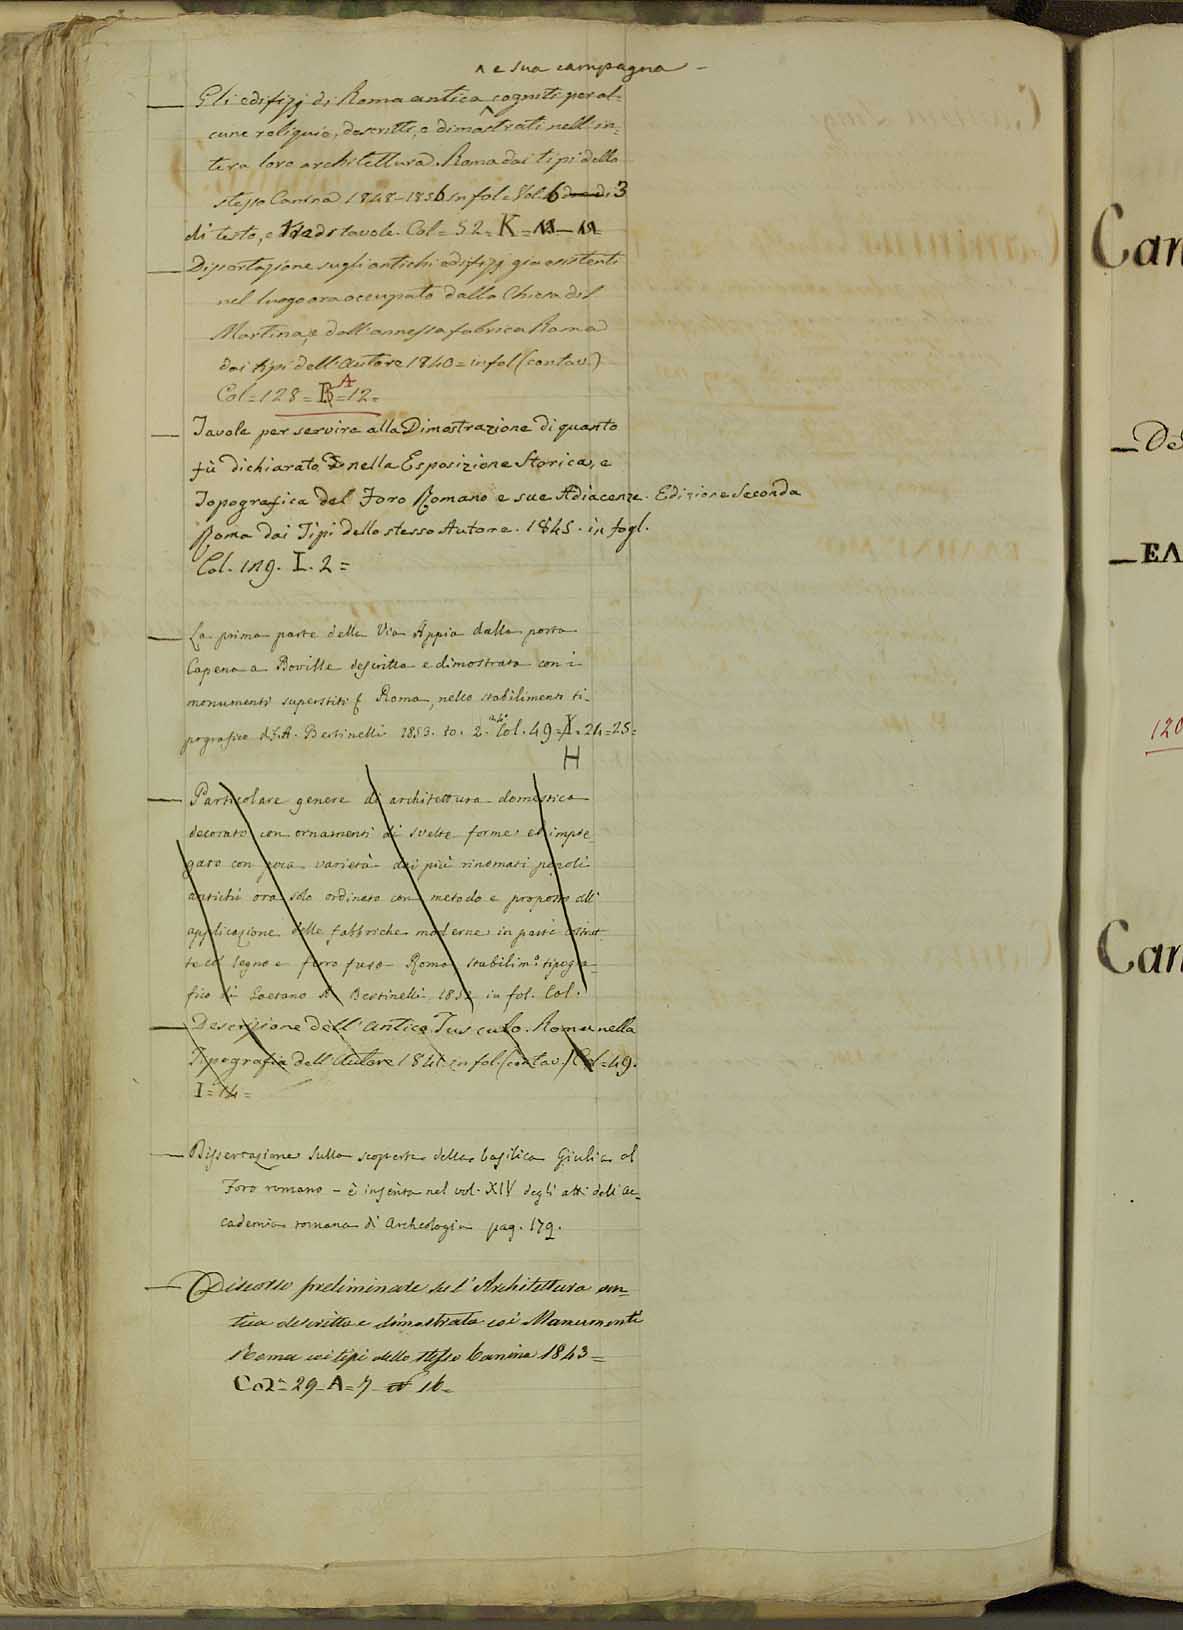 ^ e sua campagna –
— Gli edifizj di Roma antica ^ cogniti per al-
cune reliquie, descritti, e dimostrati nell' in-
tera loro architettura. Roma dai tipi dello
stesso Canina 1848-1856 in fol. Vol. 6 3
di testo, e tavole. Col = 52 = K =
— Dissertazione sugli antichi edifizj già esistenti
nel luogo ora occupato dalla Chiesa di S.
Martina, e dall' annessa fabrica Roma
dai tipi dell' Autore 1840 = in fol (con tav.)
Col = 128 = B A = 12 =
— Tavole per servire alla Dimostrazione di quanto
fù dichiarato nella Esposizione Storica, e
Topografica del Foro Romano e sue Adiacenze. Edizione Seconda
Roma dai Tipi dello stesso Autore. 1845. in fogl.
Col. 119. I. 2 =
— La prima parte della Via Appia dalla porta
Capena a Boville descritta e dimostrata con i
monumenti superstiti Roma, nello stabilimento ti-
pografico di G.A. Bertinelli 1853. to. 2. in 4° Col. 49 = I. 24 = 25 =
H
— Particolare genere di architettura domestica
decorato con ornamenti di svelte forme ed impie-
gato con poca varietà dai più rinomati popoli
antichi ora solo ordinato con metodo e proposto all'
applicazione delle fabbriche moderne in parte costrut-
te col legno e ferro fuso – Roma stabilim.° tipogra-
fico di Gaetano A Bertinelli 1852 in fol. Col.
— Descrizione dell' antico Tusculo. Roma nella
Tipografia dell' Autore 1841 in fol. (con tav.) Col = 49.
I = 14 =
— Dissertazione sulla scoperta della basilica Giulia al
Foro romano – è inserita nel vol. XIV degli atti dell' Ac-
cademia romana di Archeologia pag. 179.
— Discorso preliminare sul' Architettura an-
tica descritta e dimostrata coi Monumenti
Roma coi tipi dello stesso Canina 1843 =
Col = 29 - A = 7 16 =
Can
— De
— ΕΛ
120
Can